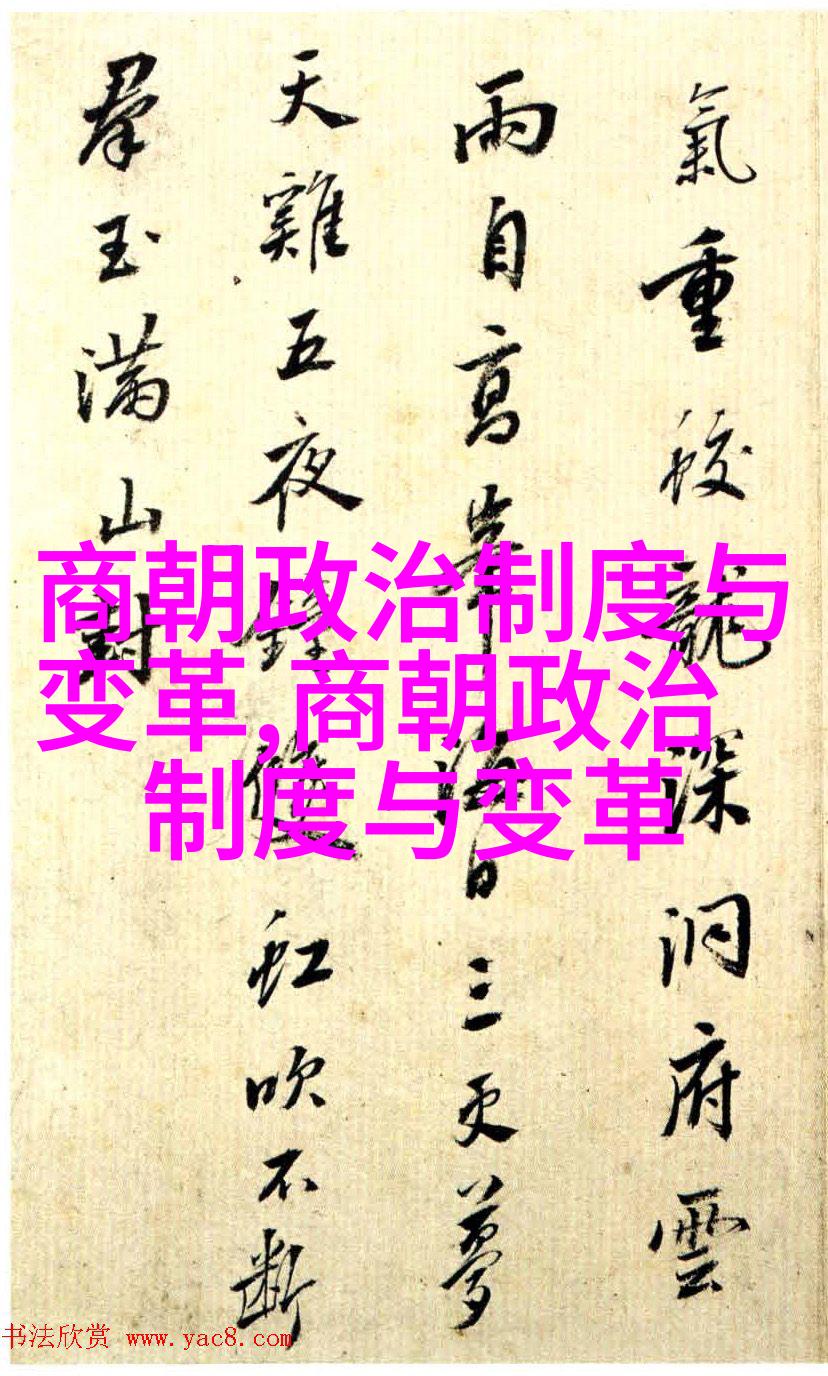 氣重蛟龍深洞府雲
雨自高峯海日三更夢
天雞五夜鐘雙虹吹不斷
羣玉滿山對
商朝政治制度与
变革,商朝政治
制度与变革
书法欣赏 www.yac8.com